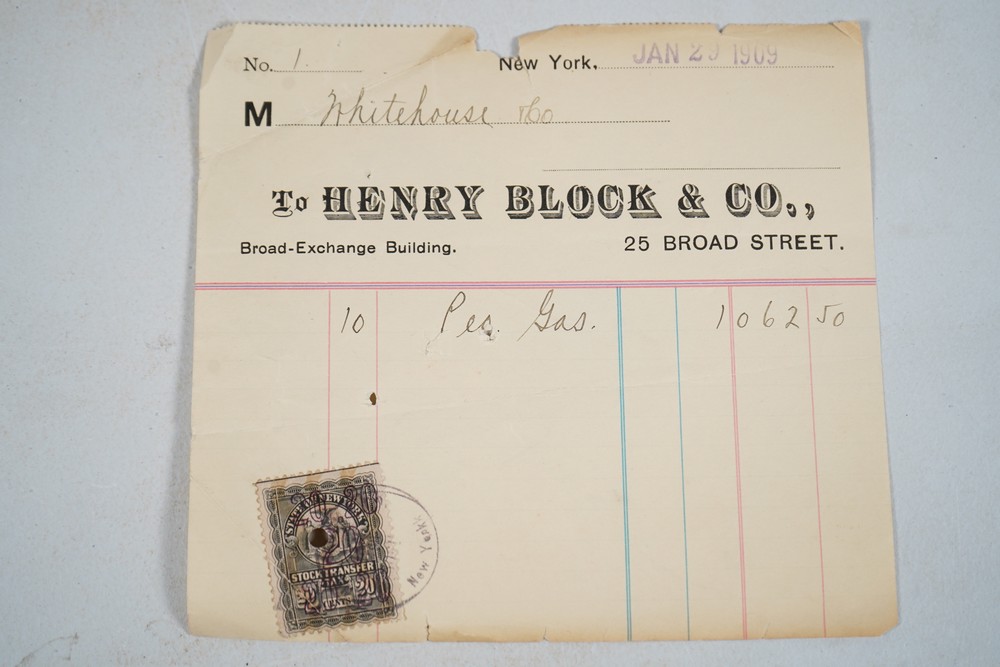 No. 1.
New York, JAN 29 1909
M Whitehouse & Co
To HENRY BLOCK & CO.,
Broad-Exchange Building.
25 BROAD STREET.
10 Peo. Gas. 1062 50
STATE OF NEW YORK
STOCK TRANSFER
TAX
2 CENTS 2
New York